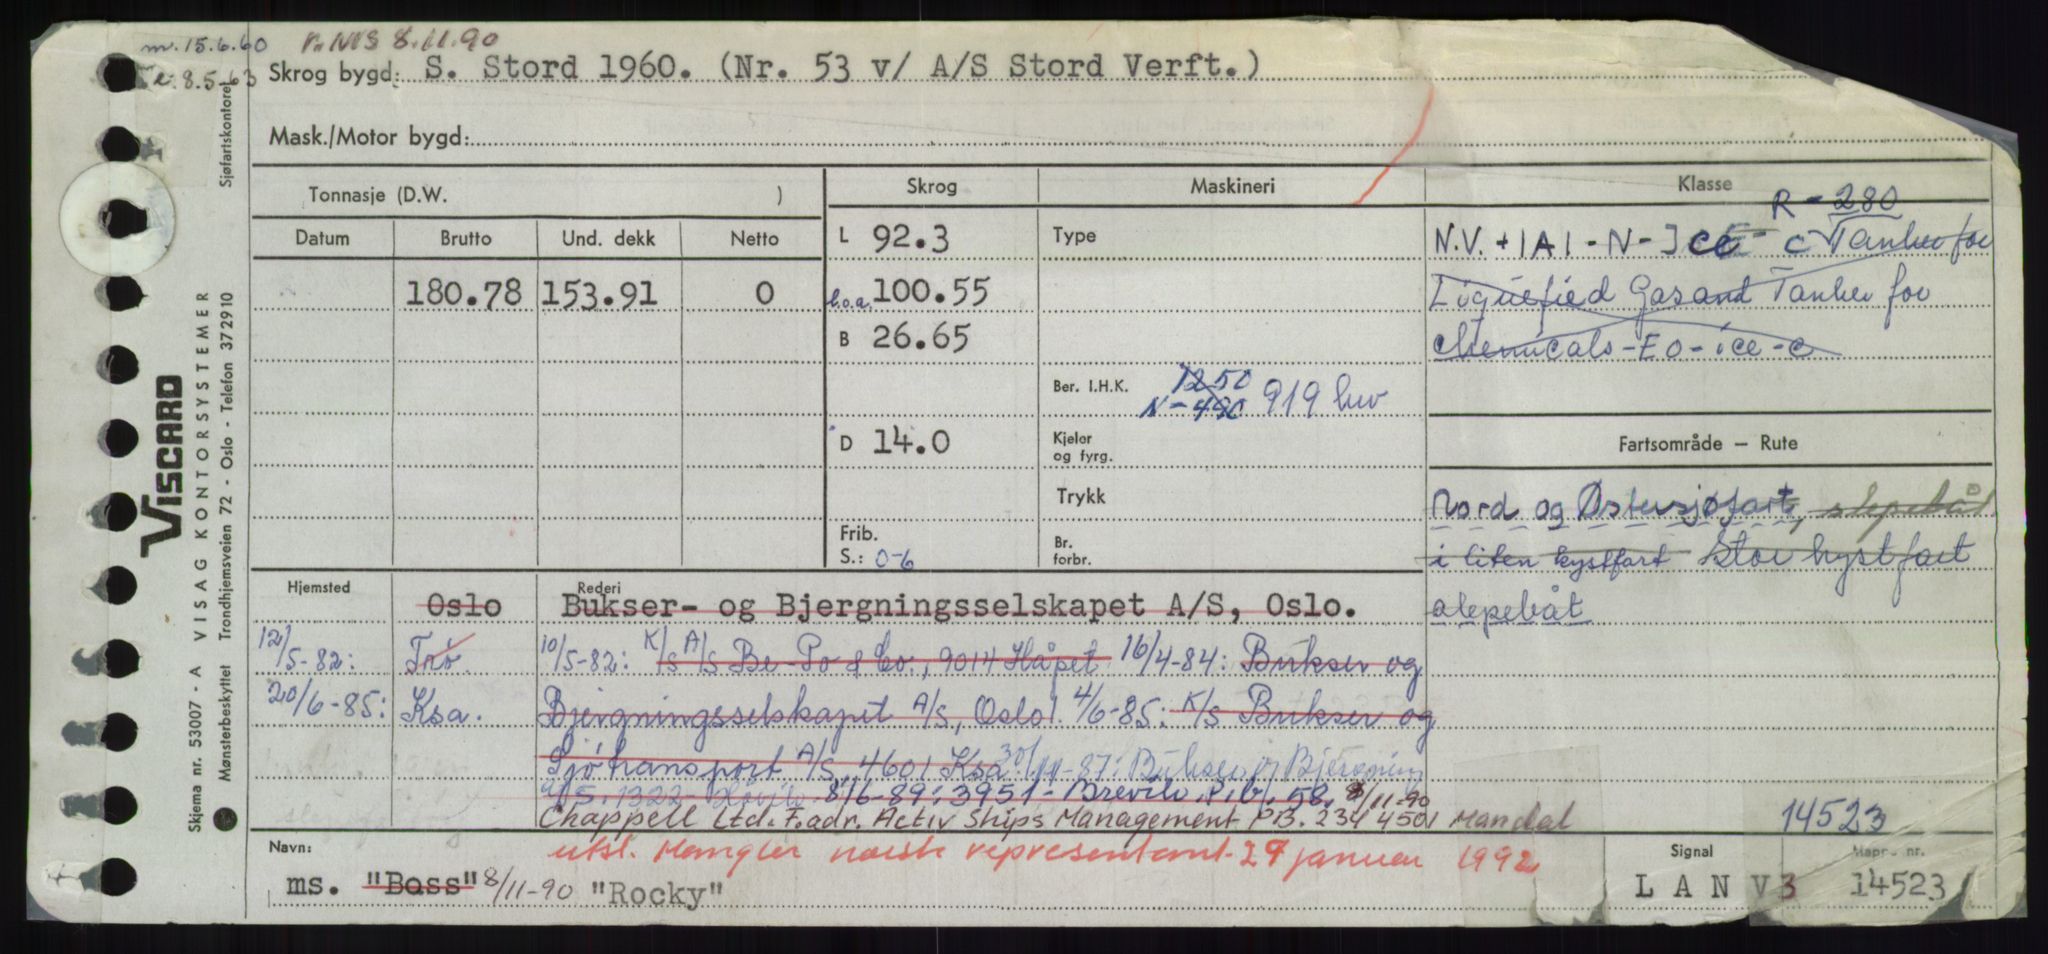 m. 15.6.60 r. NIS 8.11.90
e. 8.5-63 Skrog bygd: S. Stord 1960. (Nr. 53 v/ A/S Stord Verft.)
Mask./Motor bygd:
Tonnasje (D.W. ) Skrog Maskineri Klasse
R - 280
Datum Brutto Und. dekk Netto L 92.3 Type N.V. + 1A1 - N - Ice - c Tanker for
180.78 153.91 0 l.o.a. 100.55 Liquefied Gas and Tanker for
B 26.65 chemicals - E0 - ice - c
Ber. I.H.K. 1250
N - 490 919 hv
D 14.0 Kjeler og fyrg. Fartsområde — Rute
Trykk Nord og Østersjøfart, slepebåt
Frib. S.: 0-6 Br. forbr. i liten kystfart Stor kystfart
Hjemsted Rederi
Oslo Bukser- og Bjergningsselskapet A/S, Oslo. slepebåt
12/5-82: Trö. 10/5-82: K/S A/S Be-Po & Co., 9014 Håpet 16/4-84: Bukser og
20/6-85: Ksa. Bjergningsselskapet A/S, Oslo 1. 4/6-85: K/S Bukser og
Sjötransport A/S, 4601 Ksa 30/ -87: Bukser og Bjergning
A/S, 1322 Høvik. 8/6-89: 3951 - Brevik, P.b. 58. 8/11-90
Chappell Ltd. F.adr. Activ Ships Management P.B. 234 4501 Mandal 14523
utsl. Mangler norsk representant. 27 januar 1992
Navn: ms. "Bass" 8/11-90 "Rocky" Signal LANV3 Mappe nr. 14523
Sjøfartskontoret
VISCARD
VISAG KONTORSYSTEMER
Trondhjemsveien 72 - Oslo - Telefon 372910
Skjema nr. 53007 - A
Mønsterbeskyttet